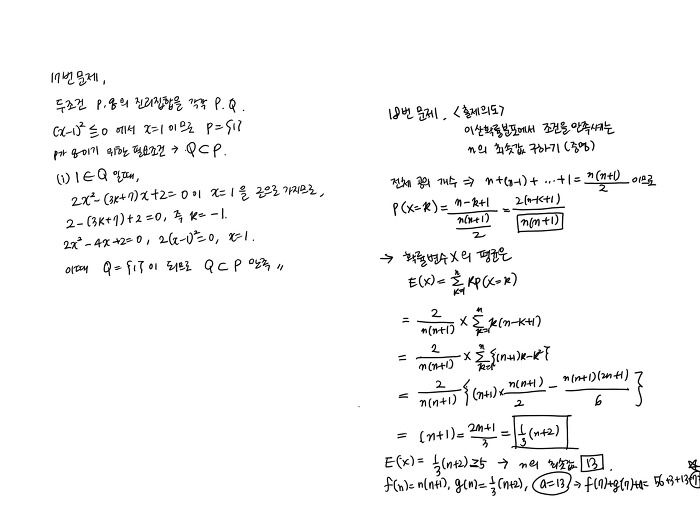 17번 문제,
두조건 P, q의 진리집합을 각각 P, Q.
(x-1)² ≤ 0 에서 x=1 이므로 P={1}
P가 q이기 위한 필요조건 → Q⊂P.
(i) 1∈Q 일때,
2x²-(3k+7)x+2=0 이 x=1 을 근으로 가지므로,
2-(3k+7)+2=0, 즉 k=-1.
2x²-4x+2=0, 2(x-1)²=0, x=1.
이때 Q={1} 이 되므로 Q⊂P 만족 〃
18번 문제. <출제의도>
이산확률분포에서 조건을 만족시키는
n의 최솟값 구하기 (증명)
전체 공의 개수 ⇒ n+(n-1)+ ... +1 = n(n+1)/2 이므로
P(X=k) = (n-k+1)/(n(n+1)/2) = 2(n-k+1)/n(n+1)
→ 확률변수 X의 평균은
E(X) = Σ_{k=1}^{n} kP(X=k)
= 2/n(n+1) × Σ_{k=1}^{n} k(n-k+1)
= 2/n(n+1) × Σ_{k=1}^{n} {(n+1)k-k²}
= 2/n(n+1) {(n+1)× n(n+1)/2 - n(n+1)(2n+1)/6}
= (n+1) = 2n+1/3 = 1/3(n+2)
E(X) = 1/3(n+2) ≥5 → n의 최솟값 13.
f(n)=n(n+1), g(n)=1/3(n+2), a=13 → f(7)+g(7)+a= 56+3+13